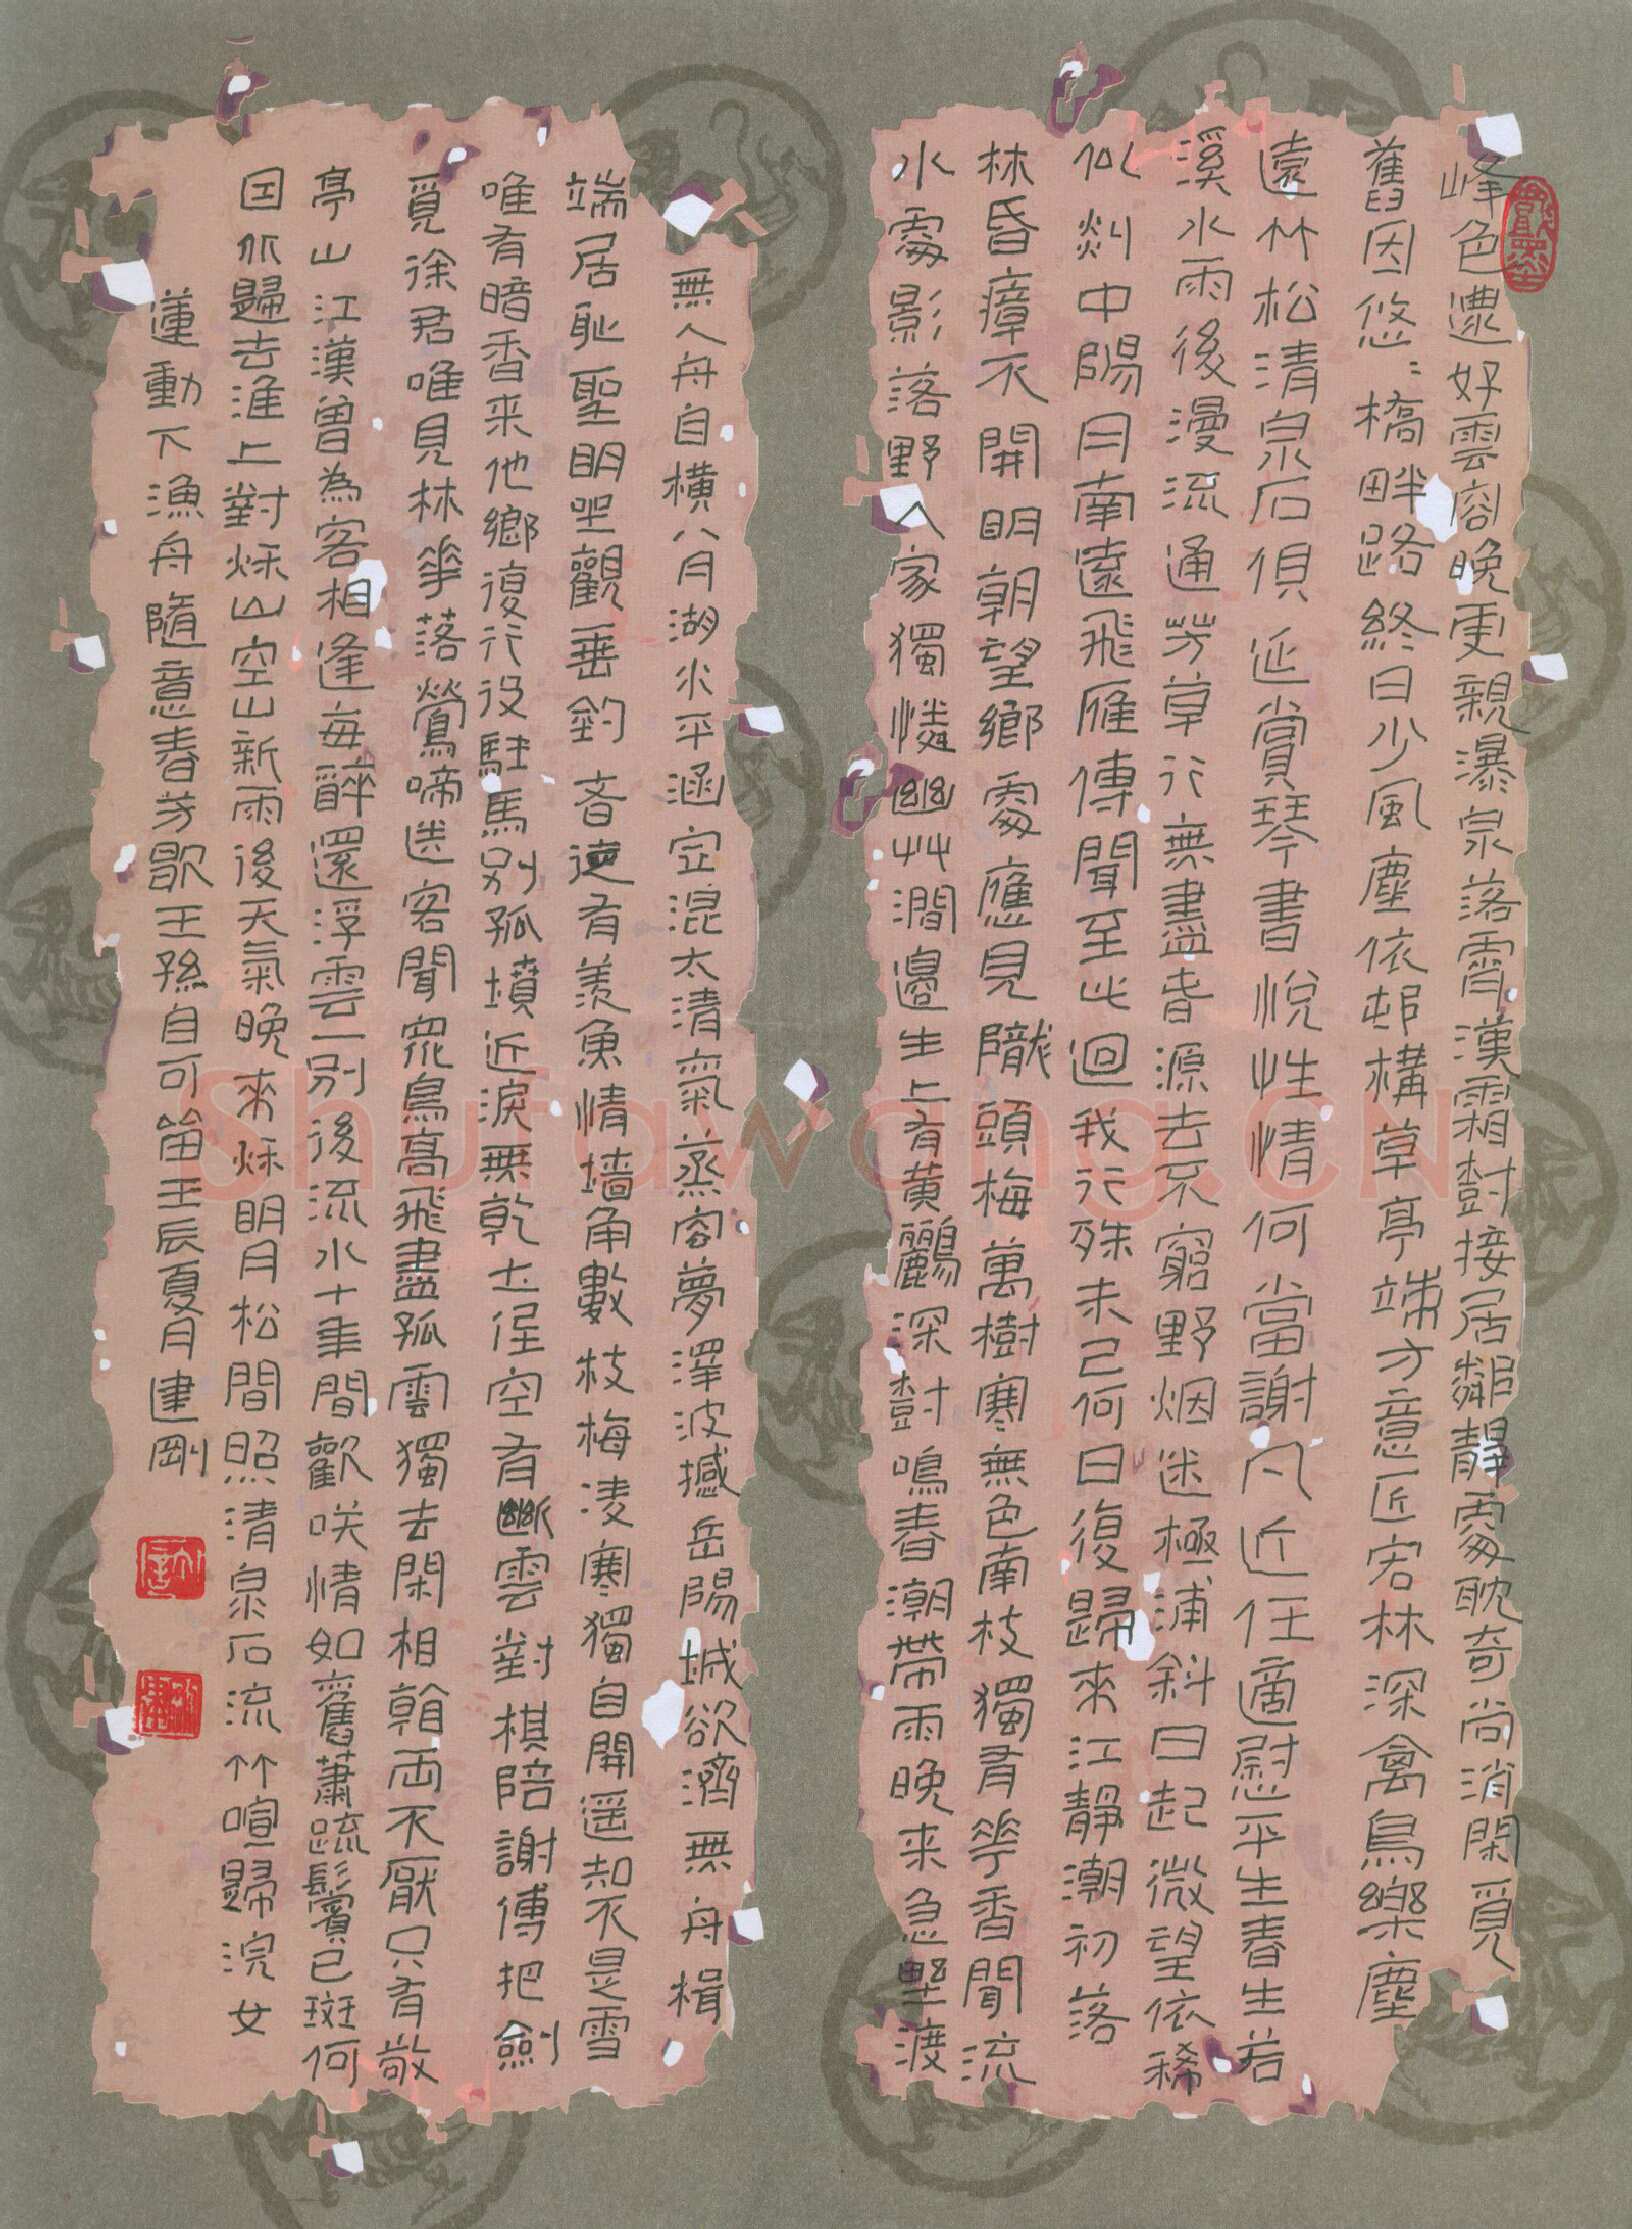 峰色遭好雲容晚更親瀑泉落霄漢霜樹接居鄰靜處耽奇尚消閑覓
舊因悠〻橋畔路終日少風塵依邨構草亭端方意匠宏林深禽鳥樂塵
遠竹松清泉石俱延賞琴書悅性情何當謝凡近任適慰平生春生若
溪水雨後漫流通芳草行無盡春源去不窮野烟迷極浦斜日起微望依稀
似剡中陽月南遠飛雁傳聞至此迴我行殊未已何日復歸來江靜潮初落
林昏瘴不開明朝望鄉處應見隴頭梅萬樹寒無色南枝獨有華香聞流
水處影落野人家獨憐幽艸澗邊生上有黃鸝深樹鳴春潮帶雨晚来急野渡
無人舟自橫八月湖水平涵虛混太清氣蒸容夢澤波撼岳陽城欲濟無舟楫
端居耻聖明坐觀垂釣者徒有羨魚情墻角數枝梅凌寒獨自開遥知不是雪
唯有暗香来他鄉復行役駐馬別孤墳近淚無乾土低空有斷雲對棋陪謝傅把劍
覓徐君唯見林華落鶯啼送客聞眾鳥高飛盡孤雲獨去閑相看两不厭只有敬
亭山江漢曾為客相逢每醉還浮雲一別後流水十年間歡咲情如舊蕭疏鬢已斑何
因不歸去淮上對秋山空山新雨後天氣晚來秋明月松間照清泉石流竹喧歸浣女
蓮動下漁舟隨意春芳歇王孫自可留壬辰夏月建剛
Shufawang.CN